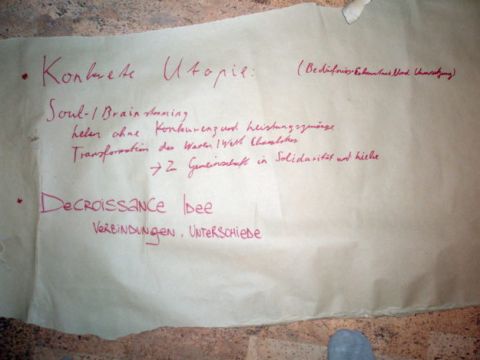 • Konkrete Utopie: (Bedürfnis-Erkenntnis und Umsetzung)
Soul-/Brainstorming
Leben ohne Konkurrenz und Leistungszwänge
Transformation des Waren/Welt
→ Zu Gemeinschaft in Solidarität und Liebe
• DECROISSANCE IDEE
VERBINDUNGEN, UNTERSCHIEDE